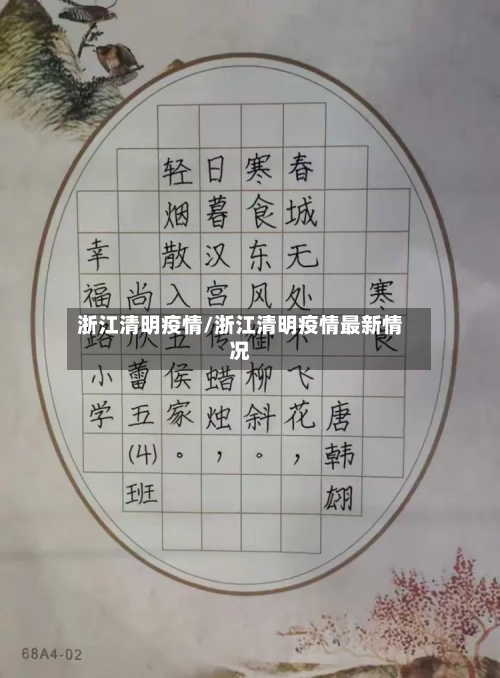 寒食
唐韩翃
春城无处不飞花，
寒食东风御柳斜。
日暮汉宫传蜡烛，
轻烟散入五侯家。
尚欣蕾五(4)班
幸福路小学
浙江清明疫情/浙江清明疫情最新情
况
68A4-02